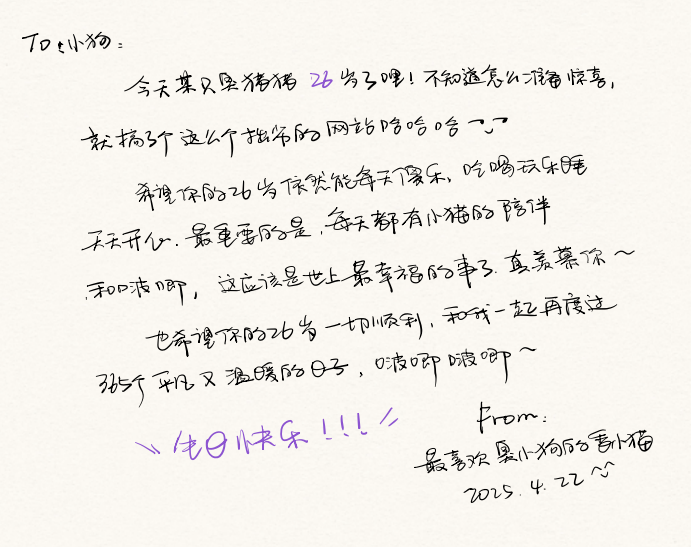 To:小狗:
今天某只臭猪猪 26 岁了哩!不知道怎么准备惊喜,
就搞了个这么个拙劣的网站哈哈哈~
希望你的26岁依然能每天傻乐、吃喝玩乐睡
天天开心.最重要的是,每天都有小猫的陪伴
和啵唧,这应该是世上最幸福的事了.真羡慕你~
也希望你的26岁一切顺利,和我一起再度过
365个平凡又温暖的日子,啵唧啵唧~
\\生日快乐!!!//
From:
最喜欢臭小狗的香小猫
2025.4.22